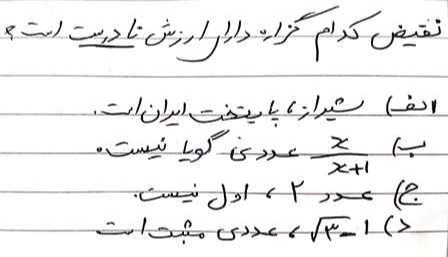 نقیض کدام گزاره دارای ارزش نادرست است؟
الف) شیراز، پایتخت ایران است.
ب) x/x+1 عددی گویا نیست.
ج) عدد ۲، اول نیست.
د) ۱-√۳، عددی مثبت است